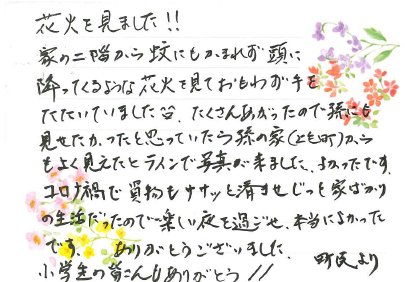 花火を見ました!!
家の二階から蚊にもかまれず頭に
降ってくるような花火を見ておもわず手を
たたいていました。たくさんあがったので孫にも
見せたかったと思っていたら孫の家(とも町)から
もよく見えたとラインで写真が来ました、よかったです。
コロナ禍で買物もササッと済ませじっと家ばかり
の生活だったので楽しい夜を過ごせ、本当によかった
です。 ありがとうございました、
小学生の皆さんもありがとう!! 町民より